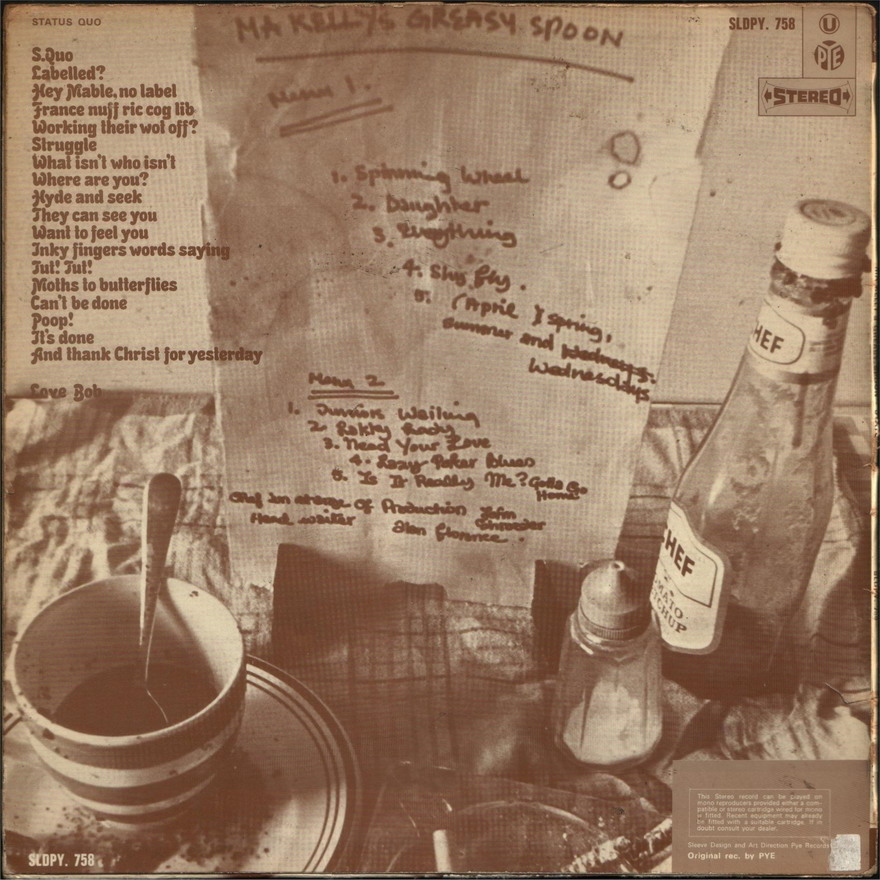 STATUS QUO
S.Quo
Labelled?
Hey Mable, no label
France nuff ric cog lib
Working their wot off?
Struggle
What isn't who isn't
Where are you?
Hyde and seek
They can see you
Want to feel you
Inky fingers words saying
Tut! Tut!
Moths to butterflies
Can't be done
Poop!
It's done
And thank Christ for yesterday
Love Bob
MA KELLY'S GREASY SPOON
Menu 1.
1. Spinning Wheel
2. Daughter
3. Everything
4. Shy fly.
5. (April) Spring,
Summer and Wednesys.
Wednesdays
Menu 2
1. Juniors Weiling
2. Lakky Lady
3. Need Your Love
4. Lazy Poker Blues
5. Is It Really Me? Gotta Go
Home
Chef in charge of Production John
Schroeder
Head waiter Alan Florence.
SLDPY. 758
U
PYE
STEREO
CHEF
CHEF
TOMATO
KETCHUP
SLDPY. 758
This Stereo record can be played on
mono reproducers provided either a com-
patible or stereo cartridge wired for mono
is fitted. Recent equipment may already
be fitted with a suitable cartridge. If in
doubt consult your dealer.
Sleeve Design and Art Direction Pye Records
Original rec. by PYE